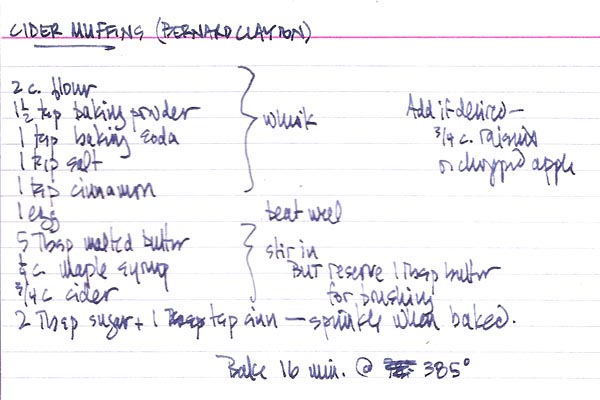 CIDER MUFFINS (BERNARD CLAYTON)
2 c. flour
1 1/2 tsp baking powder
1 tsp baking soda
1 tsp salt
1 tsp cinnamon
whisk
Add if desired —
3/4 c. raisins
or chopped apple
1 egg
beat well
5 Tbsp melted butter
c. maple syrup
3/4 c. cider
stir in
BUT reserve 1 Tbsp butter
for brushing
2 Tbsp sugar + 1 tsp cinn — sprinkle when baked.
Bake 16 min. @ 385°